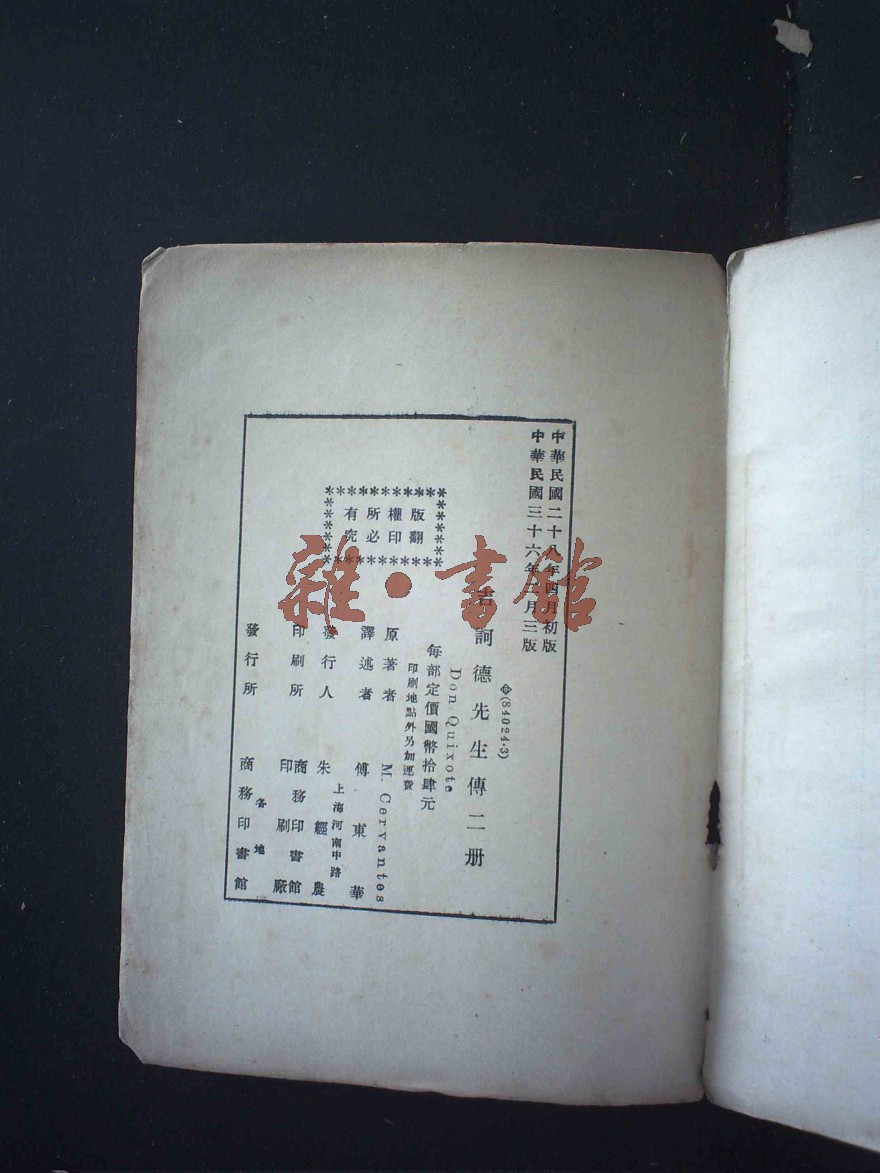 中華民國二十八年四月初版
中華民國三十六年月三版
(84024·3)
吉訶德先生傳二册
Don Quixote
每部定價國幣拾肆元
印刷地點外另加運費
翻印必究
版權所有
原著者 M. Cervantes
譯述者 傅東華
上海河南中路
發行人 朱經農
印刷所 商務印書館
印刷廠
各地
發行所 商務印書館
雜·書館